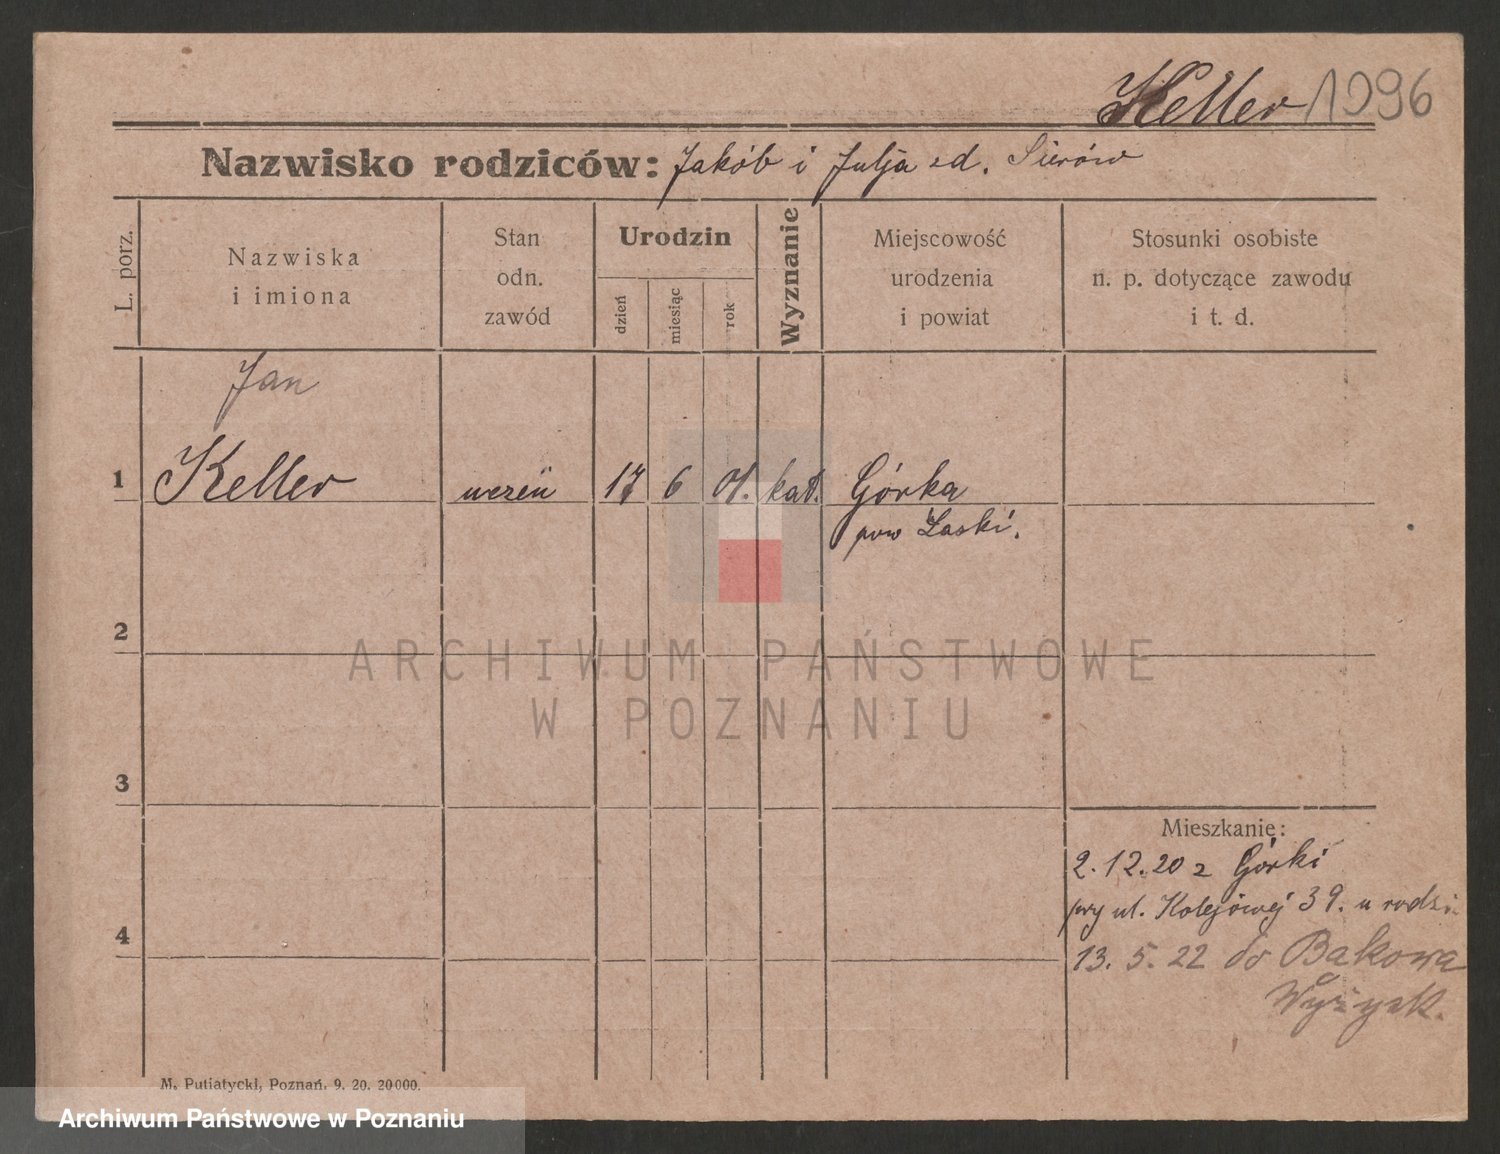 Keller 1096
Nazwisko rodziców: Jakób i Julja zd. Sierów
L. porz.
Nazwiska
i imiona
Stan
odn.
zawód
Urodzin
dzień
miesiąc
rok
Wyznanie
Miejscowość
urodzenia
i powiat
Stosunki osobiste
n. p. dotyczące zawodu
i t. d.
Jan
1 Keller uczeń 17 6 01. kat. Górka
pow Łaski.
2
ARCHIWUM PAŃSTWOWE
W POZNANIU
3
Mieszkanie:
2.12.20 z Górki
przy ul. Kolejowej 39. u rodzi.
4
13. 5. 22 do Bakowa
Wyrzysk.
M. Putiatycki, Poznań. 9. 20. 20000.
Archiwum Państwowe w Poznaniu